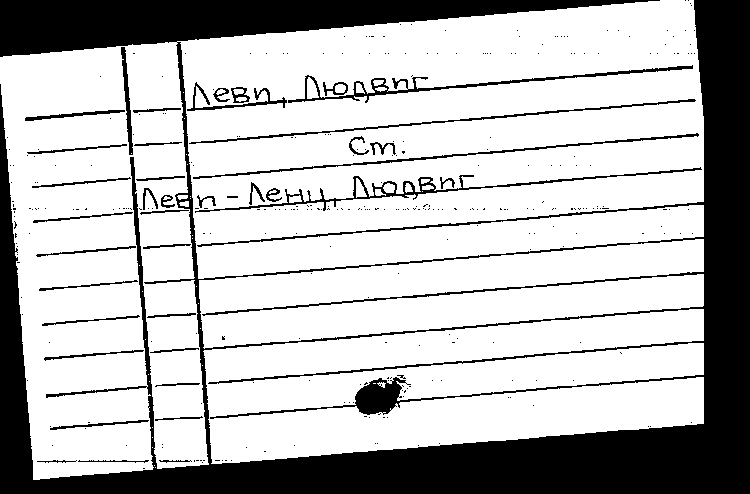 Леви, Людвиг
Ст.
Леви - Ленц, Людвиг